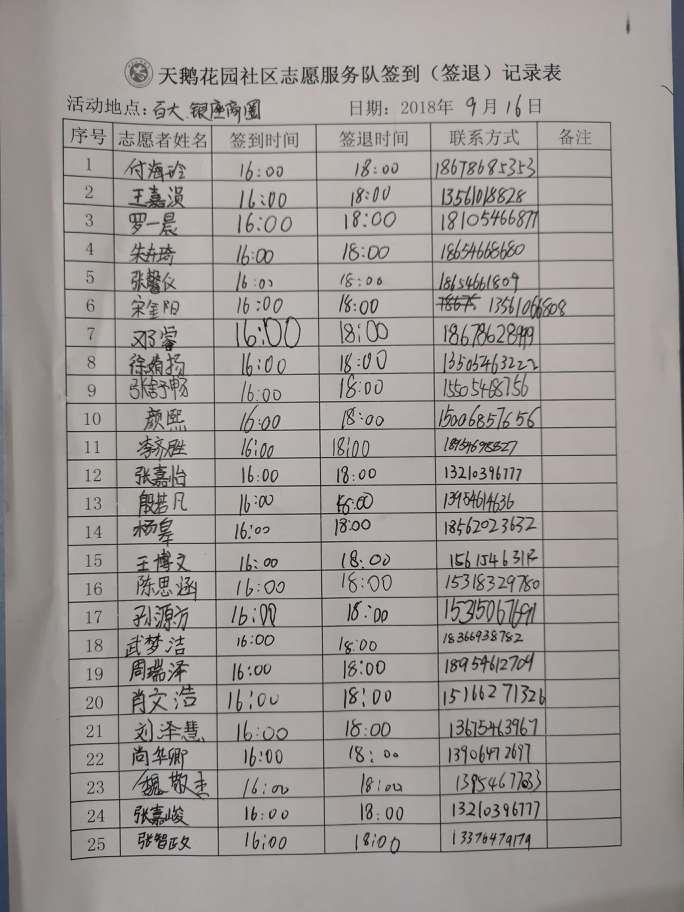 天鹅花园社区志愿服务队签到（签退）记录表
活动地点：百大 银座商圈 日期：2018年 9月16日
序号 志愿者姓名 签到时间 签退时间 联系方式 备注
1 付海玲 16:00 18:00 18678685353
2 王嘉 16:00 18:00 13561018828
3 罗一晨 16:00 18:00 18105466877
4 朱卉琦 16:00 18:00 18654668680
5 张馨仪 16:00 18:00 18654661809
6 宋金阳 16:00 18:00 13561066808
7 邓睿 16:00 18:00
8 徐婧扬 16:00 18:00 13505463222
9 张舒畅 16:00 18:00 15505468756
10 颜熙 16:00 18:00 15006857656
11 李齐胜 16:00 18:00
12 张嘉怡 16:00 18:00 13210396777
13 殷若凡 16:00 18:00 13954614636
14 杨皋 16:00 18:00 18562023632
15 王博文 16:00 18:00
16 陈思涵 16:00 18:00 15318329780
17 孙源方 16:00 18:00
18 武梦洁 16:00 18:00 18366938782
19 周瑞泽 16:00 18:00 18954612704
20 肖文浩 16:00 18:00 15166271326
21 刘泽慧 16:00 18:00 13675463967
22 尚华卿 16:00 18:00 13906472697
23 魏敬杰 16:00 18:00
24 张嘉峻 16:00 18:00 13210396777
25 张智政 16:00 18:00 13376479179